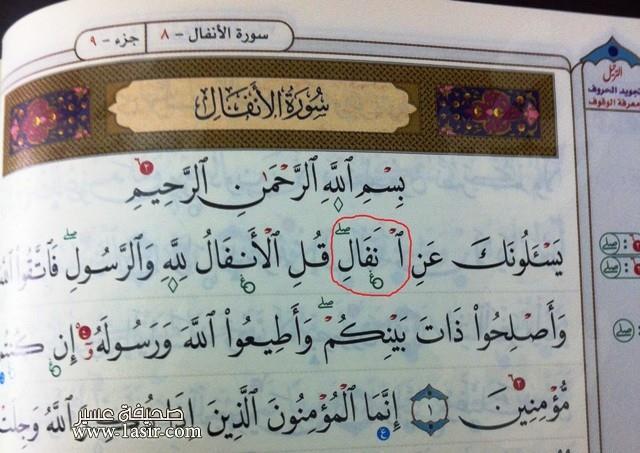 سورة الأنفال - ٨
جزء - ٩
الترتيل
تجويد الحروف
معرفة الوقوف
سُورَةُ الأَنفَالِ
بِسْمِ ٱللَّهِ ٱلرَّحْمَٰنِ ٱلرَّحِيمِ
يَسْـَٔلُونَكَ عَنِ ٱ نفَالِ ۖ قُلِ ٱلْأَنفَالُ لِلَّهِ وَٱلرَّسُولِ ۖ فَٱتَّقُوا۟
وَأَصْلِحُوا۟ ذَاتَ بَيْنِكُمْ ۖ وَأَطِيعُوا۟ ٱللَّهَ وَرَسُولَهُۥٓ إِن
مُّؤْمِنِينَ ١ إِنَّمَا ٱلْمُؤْمِنُونَ ٱلَّذِينَ إِذَا ذُكِرَ ٱللَّهُ وَجِلَتْ
صحيفة عسير
www.1asir.com